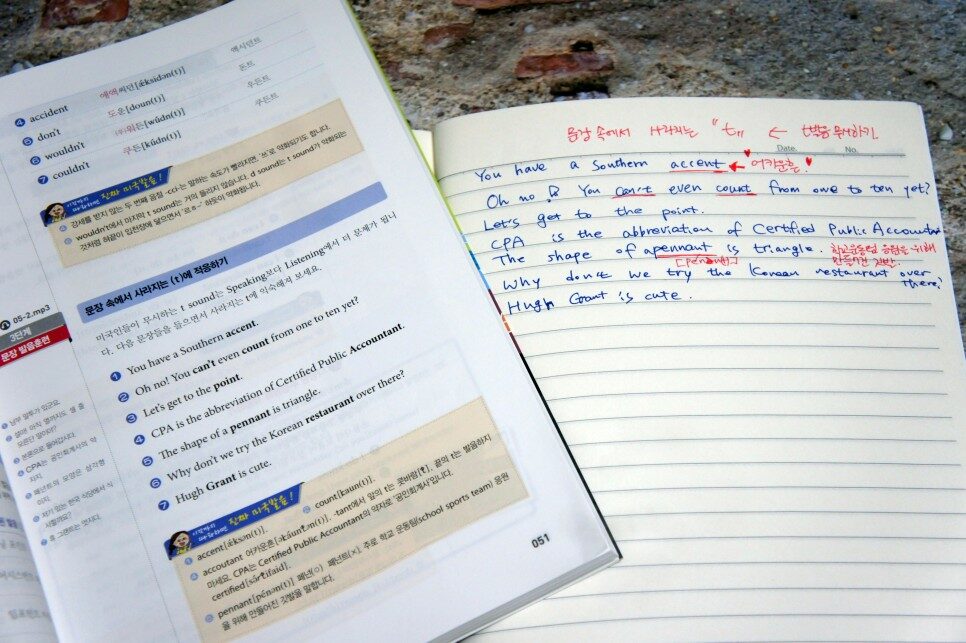 ④ accident 에액씨던[ǽksidən(t)] 액시던트
⑤ don't 도운[doun(t)] 돈트
⑥ wouldn't (우)워든[wúdn(t)] 우든트
⑦ couldn't 쿠든[kúdn(t)] 쿠든트
진짜 미국발음!
① 강세를 받지 않는 두 번째 음절 -cci-는 말하는 속도가 빨라지면, '쓰'로 약화되기도 합니다.
② wouldn't에서 마지막 t sound는 거의 들리지 않습니다. d sound는 t sound가 약화되는
것처럼 혀끝이 입천장에 닿으면서 하듯이 약화됩니다.
05-2.mp3
3단계
문장 발음훈련
문장 속에서 사라지는 (t)에 적응하기
미국인들이 무시하는 t sound는 Speaking보다 Listening에서 더 문제가 됩니
다. 다음 문장들을 들으면서 사라지는 t에 익숙해져 보세요.
① You have a Southern accent.
② Oh no! You can't even count from one to ten yet?
③ Let's get to the point.
④ CPA is the abbreviation of Certified Public Accountant.
⑤ The shape of a pennant is triangle.
⑥ Why don't we try the Korean restaurant over there?
⑦ Hugh Grant is cute.
① 남부 말투가 있군요.
② 설마 아직 열까지도 셀 줄
모른단 말이야?
③ 본론으로 들어갑시다.
④ CPA는 공인회계사의 약
자지.
⑤ 페넌트의 모양은 삼각형
이지.
⑥ 저기 있는 한국 식당에서 식
사할까요?
⑦ 휴 그랜트는 멋지다.
진짜 미국발음!
① accent[ǽksən(t)] ② count[kaun(t)].
③ accoutant 어카운흔[əkáuntən(t)]. -tant에서 앞의 t는 콧바람[t], 끝의 t는 발음하지
마세요. CPA는 Certified Public Accountant의 약자로 '공인회계사'입니다.
certified[sə́rtifaid].
pennant[pénən(t)] 페넌(○) 페넌트(×). 주로 학교 운동팀(school sports team) 응원
을 위해 만들어진 깃발을 말합니다.
051
문장 속에서 사라지는 "t" ← t발음 무시하기
Date. No.
You have a Southern accent ← 어카운흔
Oh no! You can't even count from one to ten yet?
Let's get to the point.
CPA is the abbreviation of Certified Public Accountant
The shape of a pennant is triangle. 학교운동팀 응원을 위해
[penən] 만들어진 깃발
Why don't we try the Korean restaurant over
there?
Hugh Grant is cute.